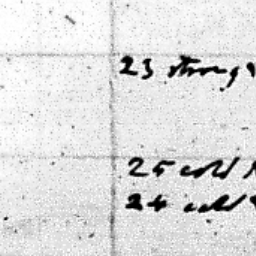 23 strong
25 cold
24 cold